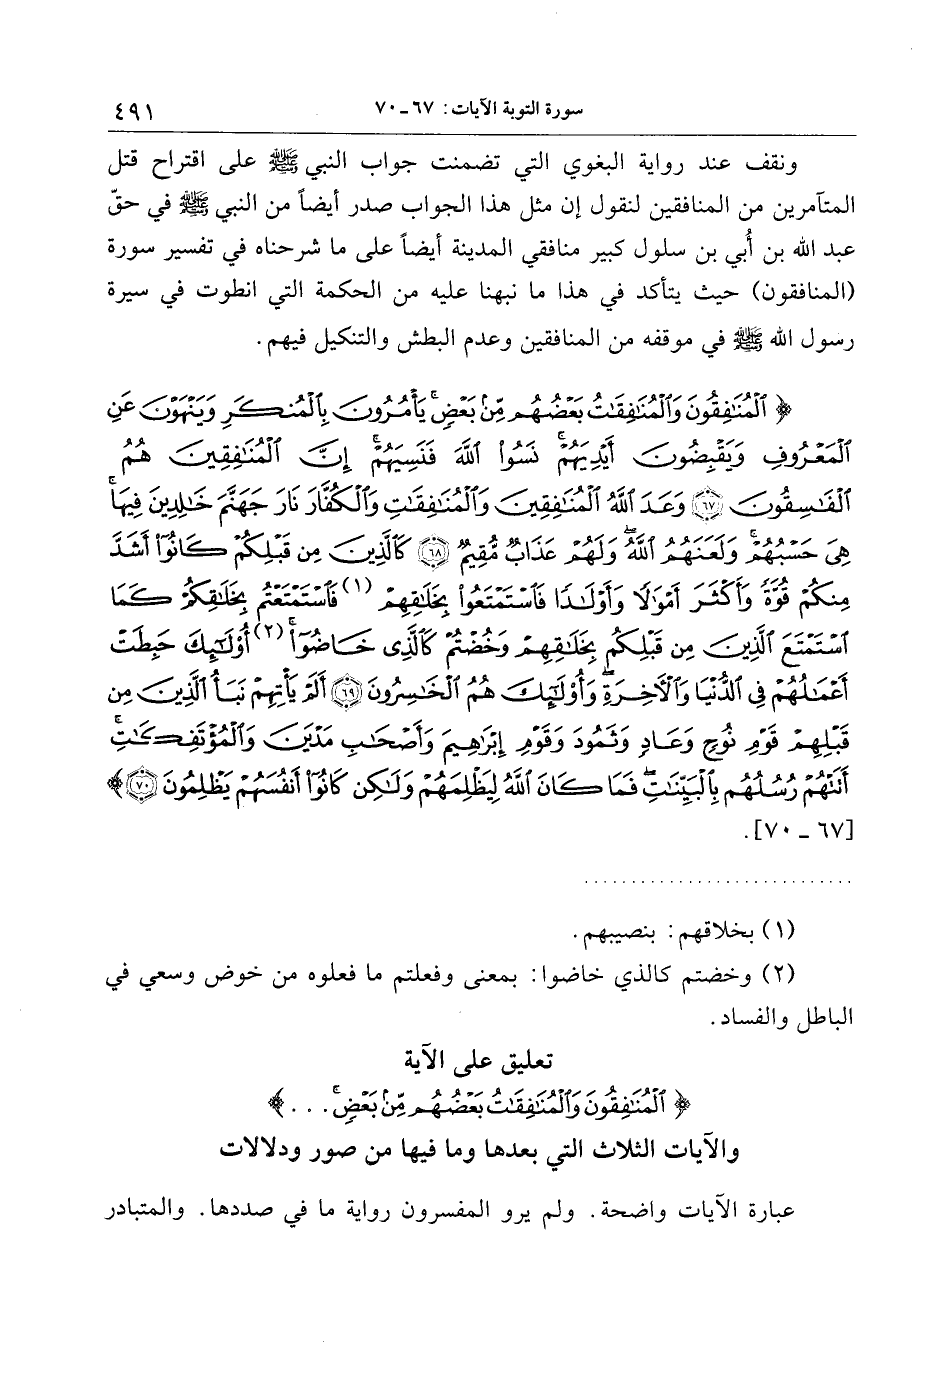 سورة التوبة الآيات: ٦٧ ـ ٧٠ ٤٩١
ونقف عند رواية البغوي التي تضمنت جواب النبي ﷺ على اقتراح قتل
المتآمرين من المنافقين لنقول إن مثل هذا الجواب صدر أيضاً من النبي ﷺ في حقّ
عبد الله بن أُبي بن سلول كبير منافقي المدينة أيضاً على ما شرحناه في تفسير سورة
(المنافقون) حيث يتأكد في هذا ما نبهنا عليه من الحكمة التي انطوت في سيرة
رسول الله ﷺ في موقفه من المنافقين وعدم البطش والتنكيل فيهم.
﴿ ٱلْمُنَٰفِقُونَ وَٱلْمُنَٰفِقَٰتُ بَعْضُهُم مِّنۢ بَعْضٍۚ يَأْمُرُونَ بِٱلْمُنكَرِ وَيَنْهَوْنَ عَنِ
ٱلْمَعْرُوفِ وَيَقْبِضُونَ أَيْدِيَهُمْۚ نَسُوا۟ ٱللَّهَ فَنَسِيَهُمْۗ إِنَّ ٱلْمُنَٰفِقِينَ هُمُ
ٱلْفَٰسِقُونَ ٦٧ وَعَدَ ٱللَّهُ ٱلْمُنَٰفِقِينَ وَٱلْمُنَٰفِقَٰتِ وَٱلْكُفَّارَ نَارَ جَهَنَّمَ خَٰلِدِينَ فِيهَاۚ
هِىَ حَسْبُهُمْۚ وَلَعَنَهُمُ ٱللَّهُۖ وَلَهُمْ عَذَابٌ مُّقِيمٌ ٦٨ كَٱلَّذِينَ مِن قَبْلِكُمْ كَانُوٓا۟ أَشَدَّ
مِنكُمْ قُوَّةً وَأَكْثَرَ أَمْوَٰلًا وَأَوْلَٰدًا فَٱسْتَمْتَعُوا۟ بِخَلَٰقِهِمْ (١) فَٱسْتَمْتَعْتُم بِخَلَٰقِكُمْ كَمَا
ٱسْتَمْتَعَ ٱلَّذِينَ مِن قَبْلِكُم بِخَلَٰقِهِمْ وَخُضْتُمْ كَٱلَّذِى خَاضُوٓا۟ۚ (٢) أُو۟لَٰٓئِكَ حَبِطَتْ
أَعْمَٰلُهُمْ فِى ٱلدُّنْيَا وَٱلْـَٔاخِرَةِۖ وَأُو۟لَٰٓئِكَ هُمُ ٱلْخَٰسِرُونَ ٦٩ أَلَمْ يَأْتِهِمْ نَبَأُ ٱلَّذِينَ مِن
قَبْلِهِمْ قَوْمِ نُوحٍ وَعَادٍ وَثَمُودَ وَقَوْمِ إِبْرَٰهِيمَ وَأَصْحَٰبِ مَدْيَنَ وَٱلْمُؤْتَفِكَٰتِۚ
أَتَتْهُمْ رُسُلُهُم بِٱلْبَيِّنَٰتِۖ فَمَا كَانَ ٱللَّهُ لِيَظْلِمَهُمْ وَلَٰكِن كَانُوٓا۟ أَنفُسَهُمْ يَظْلِمُونَ ٧٠ ﴾
[٦٧ ـ ٧٠].
. . . . . . . . . . . . . . . . . . . . . . . . . . . . .
(١) بخلاقهم: بنصيبهم.
(٢) وخضتم كالذي خاضوا: بمعنى وفعلتم ما فعلوه من خوض وسعي في
الباطل والفساد.
تعليق على الآية
﴿ ٱلْمُنَٰفِقُونَ وَٱلْمُنَٰفِقَٰتُ بَعْضُهُم مِّنۢ بَعْضٍۚ . . . ﴾
والآيات الثلاث التي بعدها وما فيها من صور ودلالات
عبارة الآيات واضحة. ولم يرو المفسرون رواية ما في صددها. والمتبادر